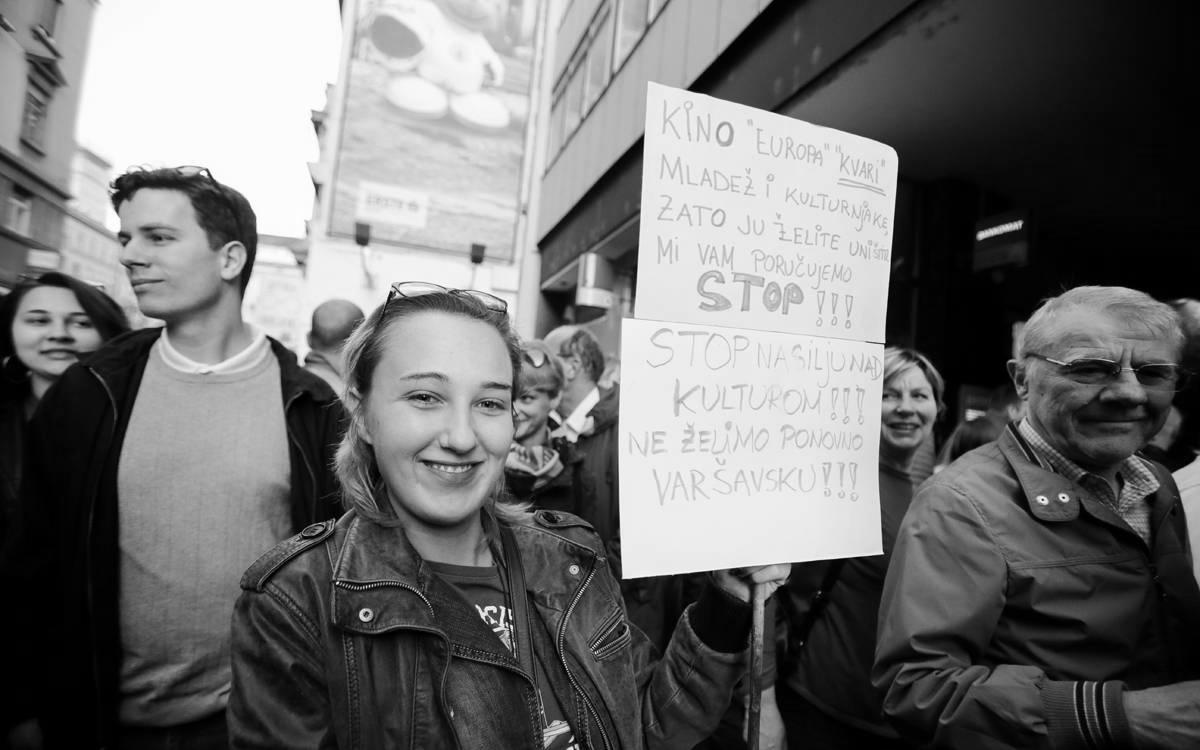 KINO "EUROPA" "KVARI"
MLADEŽ i KULTURNJAKE,
ZATO JU ŽELITE UNIŠTITI
MI VAM PORUČUJEMO
STOP!!!
STOP NASILJU NAD
KULTUROM!!!
NE ŽELIMO PONOVNO
VARŠAVSKU!!!
BANKOMAT